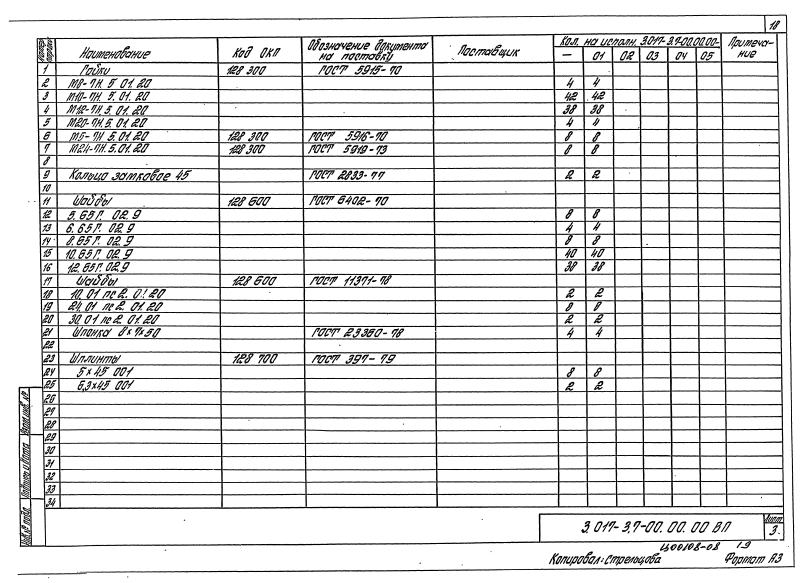 18
Номер строки Наименование Код ОКП Обозначение документа на поставку Поставщик Кол. на исполн. 3.017-3.7-00.00.00- Примеча-ние
— 01 02 03 04 05
1 Гайки 128 300 ГОСТ 5915-70
2 М8-7Н. 5. 01. 20 4 4
3 М10-7Н. 5. 01. 20 42 42
4 М12-7Н. 5. 01. 20 38 38
5 М20-7Н. 5. 01. 20 4 4
6 М5-7Н. 5. 01. 20 128 300 ГОСТ 5916-70 8 8
7 М24-7Н. 5. 01. 20 128 300 ГОСТ 5919-73 8 8
8
9 Кольцо замковое 45 ГОСТ 2833-77 2 2
10
11 Шайбы 128 600 ГОСТ 6402-70
12 5. 65Г. 02. 9 8 8
13 6. 65Г. 02. 9 4 4
14 8. 65Г. 02. 9 8 8
15 10. 65Г. 02. 9 40 40
16 12. 65Г. 02. 9 38 38
17 Шайбы 128 600 ГОСТ 11371-78
18 10. 01 пс 2. 01 20 2 2
19 24. 01 пс 2. 01. 20 8 8
20 30. 01 пс 2. 01. 20 2 2
21 Шпонка 8×7×50 ГОСТ 23360-78 4 4
22
23 Шплинты 128 700 ГОСТ 397-79
24 5×45 001 8 8
25 6,3×45 001 2 2
26
27
28
29
30
31
32
33
34
Инв.№ подл. Подпись и дата Взам.инв. №
3. 017-3.7-00. 00. 00 ВП
Лист
3
Ц00108-08 19
Копировал: Стрельцова Формат А3